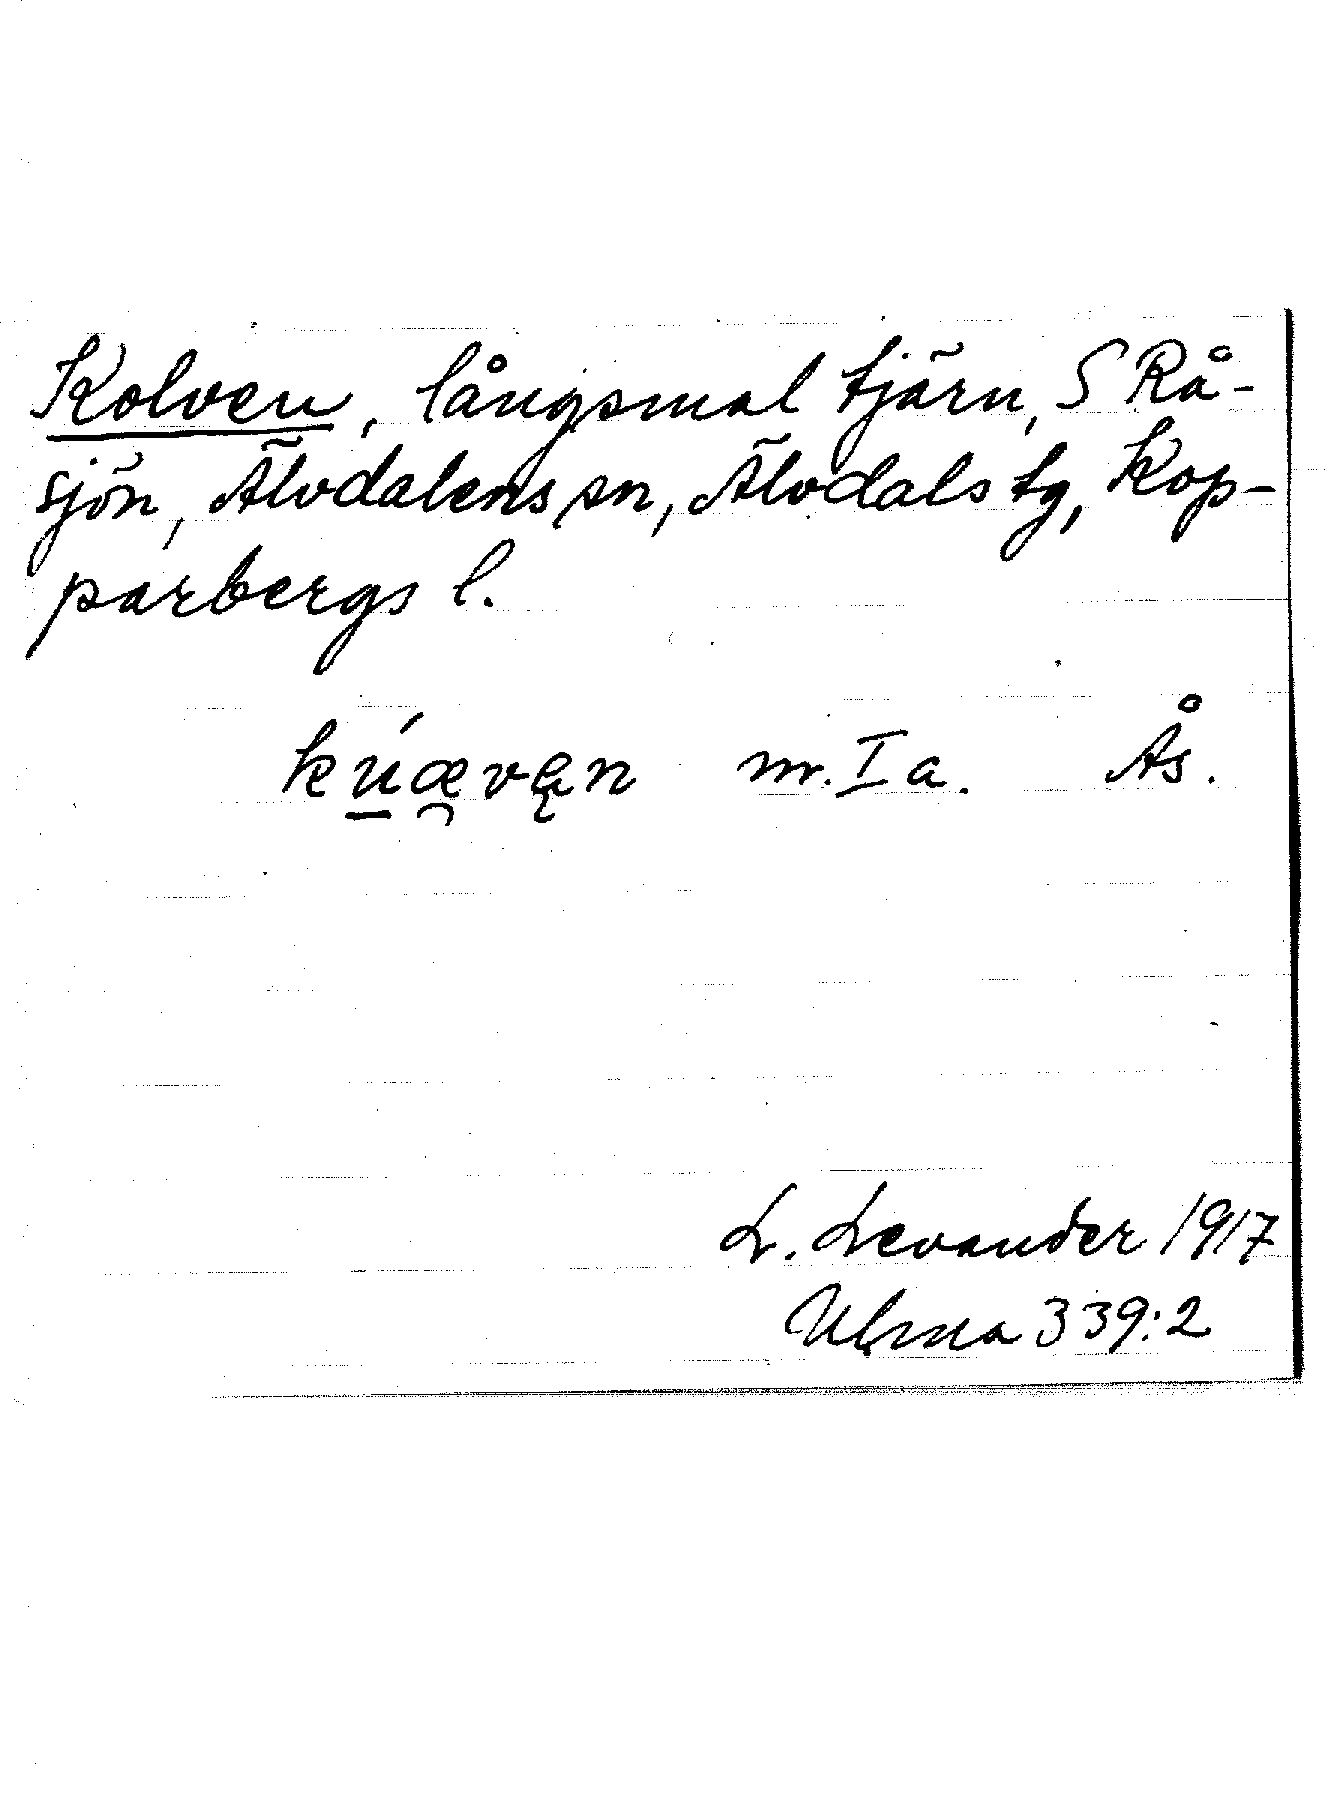 Kolven, långsmal tjärn, S Rå-
sjön, Älvdalens sn, Älvdals tg, Kop-
parbergs l.
kú̱æ̯vę̣n m. I a. Ås.
L. Levander 1917
Ulma 339:2